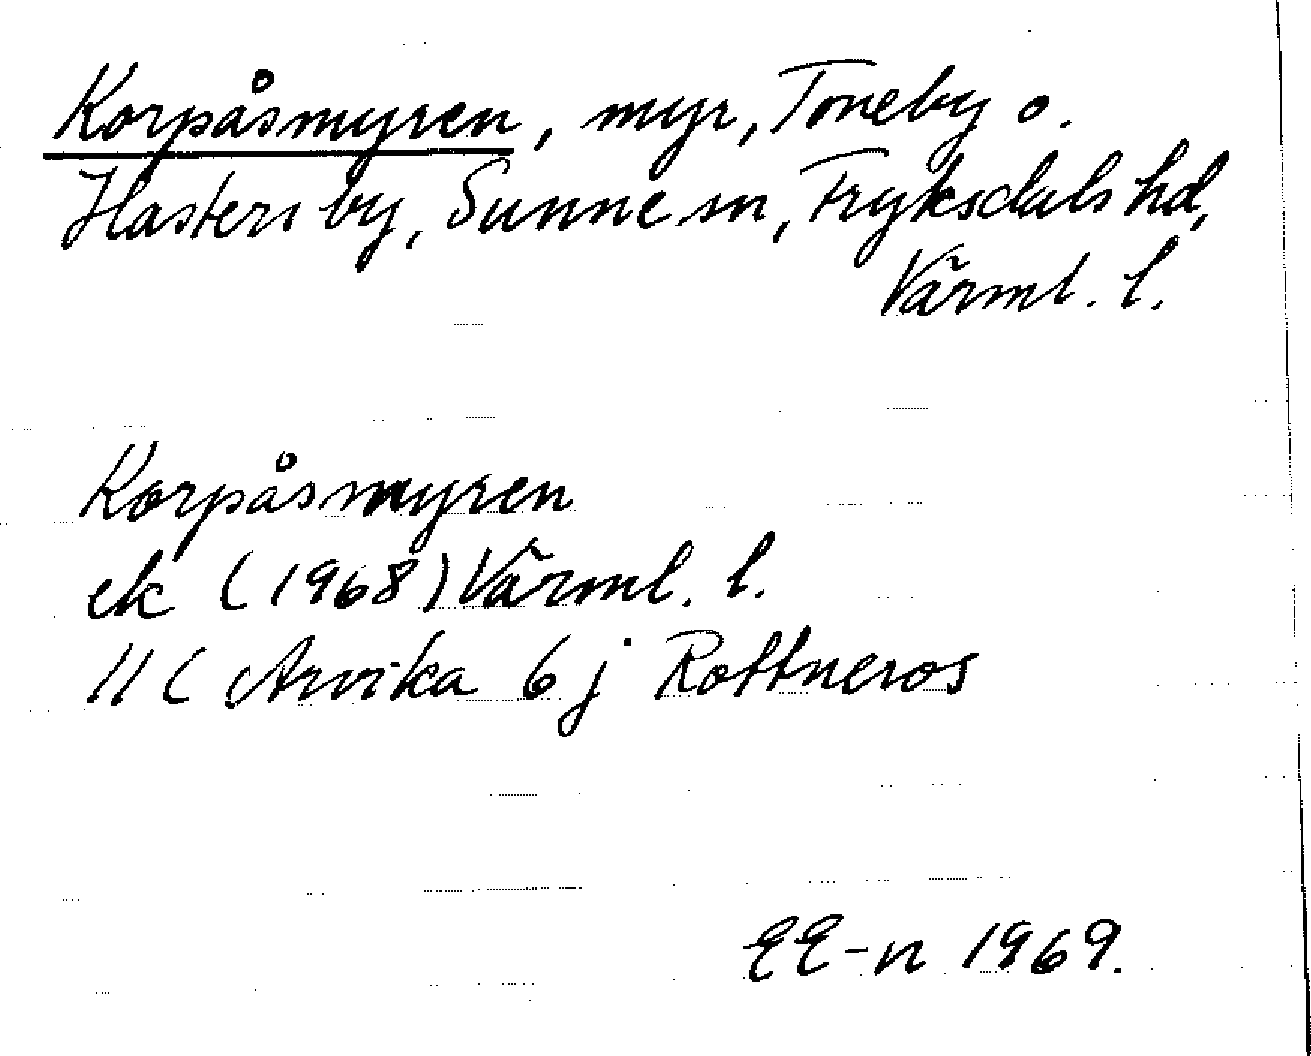 Korpåsmyren, myr, Toneby o.
Hastersby, Sunne sn, Fryksdals hd,
Värml. l.
Korpåsmyren
ek (1968) Värml. l.
11 C Arvika 6 j Rottneros
EE-n 1969.